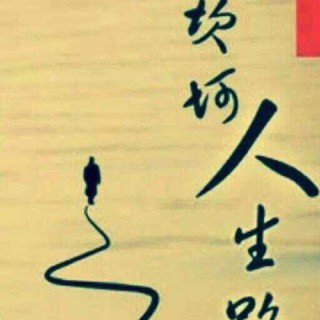 坎坷人生路